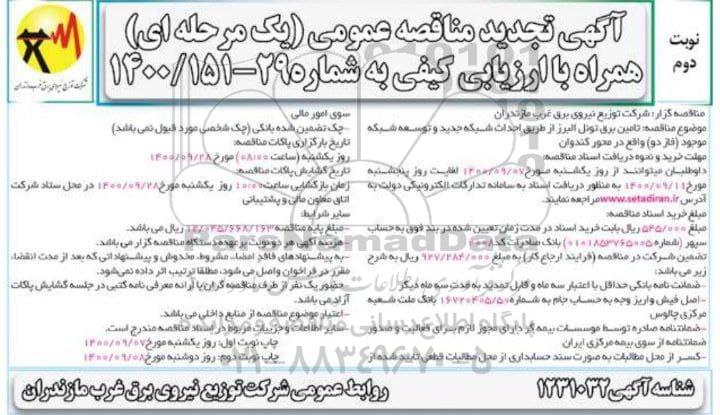 نوبت دوم
آگهی تجدید مناقصه عمومی (یک مرحله ای)
همراه با ارزیابی کیفی به شماره ۲۹-۱۴۰۰/۱۵۱
شرکت توزیع نیروی برق غرب مازندران
مناقصه گزار: شرکت توزیع نیروی برق غرب مازندران
موضوع مناقصه: تامین برق تونل البرز از طریق احداث شبکه جدید و توسعه شبکه
موجود (فاز دو) واقع در محور کندوان
مهلت خرید و نحوه دریافت اسناد مناقصه:
داوطلبان میتوانند از روز یکشنبه مورخ ۱۴۰۰/۰۹/۰۷ لغایت روز پنجشنبه
مورخ ۱۴۰۰/۰۹/۱۱ به منظور دریافت اسناد به سامانه تدارکات الکترونیکی دولت به
آدرس www.setadiran.ir مراجعه نمایند.
مبلغ خرید اسناد مناقصه:
مبلغ ۵۴۵/۰۰۰ ریال بابت خرید اسناد در مدت زمان تعیین شده در بند فوق به حساب
سپهر (شماره ۰۱۰۱۸۵۳۷۶۵۰۰۵) بانک صادرات کد ۱۰۰۸
تضمین شرکت در مناقصه (فرایند ارجاع کار) به مبلغ ۹۲۷/۲۸۴/۰۰۰ ریال به شرح
زیر می باشد:
- ضمانت نامه بانکی حداقل با اعتبار سه ماه و قابل تمدید به مدت سه ماه دیگر
-اصل فیش واریز وجه به حساب جام به شماره ۱۶۷۲۰۴۰۵/۵۰ بانک ملت شعبه
مرکزی چالوس
-ضمانتنامه صادره توسط موسسات بیمه گر دارای مجوز لازم برای فعالیت و صدور
ضمانتنامه از سوی بیمه مرکزی ایران
-کسر از محل مطالبات به صورت سند حسابداری از محل مطالبات قطعی تایید شده از
سوی امور مالی
-چک تضمین شده بانکی (چک شخصی مورد قبول نمی باشد)
تاریخ بارگزاری پاکات مناقصه:
روز یکشنبه (ساعت ۰۸:۰۰) مورخ ۱۴۰۰/۰۹/۲۸
تاریخ گشایش پاکات مناقصه:
زمان بازگشایی ساعت ۱۰:۰۰ روز یکشنبه مورخ ۱۴۰۰/۰۹/۲۸ در محل ستاد شرکت
اتاق معاون مالی و پشتیبانی
سایر شرایط:
-مبلغ پایه مناقصه ۱۲/۰۴۵/۶۶۸/۱۶۳ ریال می باشد.
-هزینه آگهی هر دو نوبت بر عهده دستگاه مناقصه گزار می باشد.
-به پیشنهادهای فاقد امضا، مشروط، مخدوش و پیشنهاداتی که بعد از مدت انقضاء
مقرر در فراخوان واصل می شود، مطلقا ترتیب اثر داده نمی شود.
-حضور یک نفر از طرف مناقصه گران با ارائه معرفی نامه کتبی در جلسه گشایش پاکات
آزاد می باشد.
-اعتبار موضوع مناقصه از منابع داخلی می باشد.
-سایر اطلاعات و جزییات مربوط در اسناد مناقصه مندرج است.
چاپ نوبت اول: روز یکشنبه مورخ ۱۴۰۰/۰۹/۰۷
چاپ نوبت دوم: روز دوشنبه مورخ ۱۴۰۰/۰۹/۰۸
شناسه آگهی ۱۲۳۱۰۳۲
روابط عمومی شرکت توزیع نیروی برق غرب مازندران
پایگاه اطلاع رسانی مناقصه و مزایده
۰۲۱-۸۸۳۴۹۶۷۰-۵